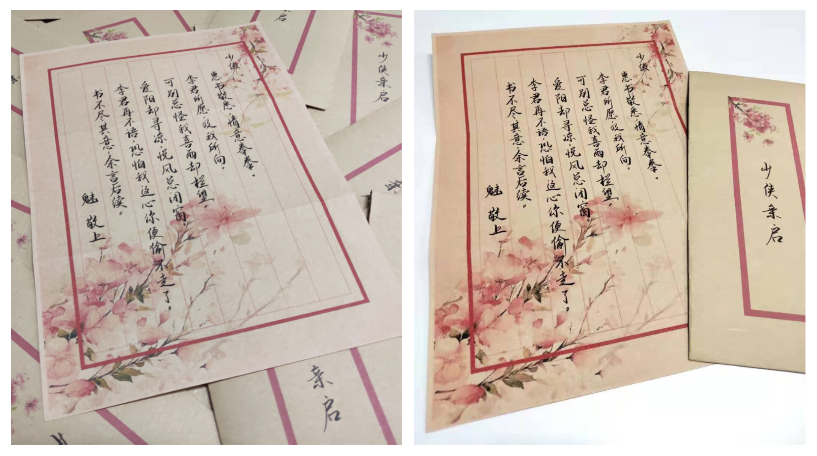 少侠：
惠书敬悉，情意拳拳。
李君所愿，亦我所向。
可别总怪我喜雨却擋塱，
爱阳却寻凉，悦风总闭窗，
李君再不语，恐怕我这心你便偷不走了。
书不尽其意，余言后续。
魅 敬上
少侠亲启
亲启
少侠：
惠书敬悉，情意拳拳。
李君所愿，亦我所向。
可别总怪我喜雨却
爱阳却寻凉，悦风总闭窗，
李君再不语，恐怕我这心你便偷不走了。
书不尽其意，余言后续。
魅 敬上
少侠亲启